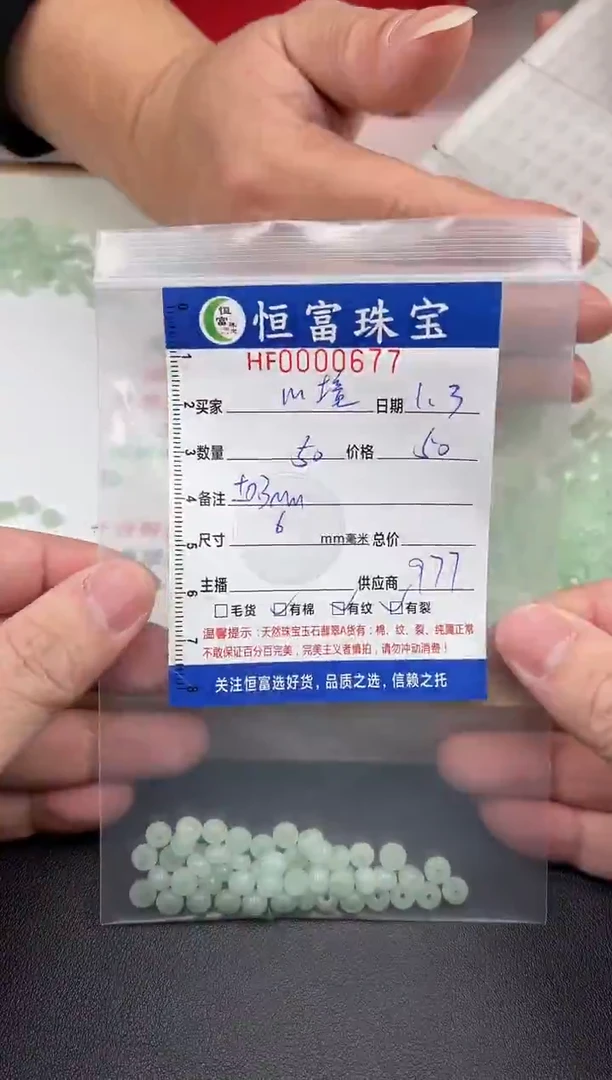 恒富珠宝
恒富珠宝 HF0000677
买家 心境 日期 1.3
数量 50 价格 50
备注 ±03mm
尺寸 6 mm毫米 总价
主播 供应商 977
毛货 有棉 有纹 有裂
温馨提示：天然珠宝玉石翡翠A货有：棉、纹、裂、纯属正常
不敢保证百分百完美，完美主义者慎拍，请勿冲动消费！
关注恒富选好货，品质之选，信赖之托
0
1
2
3
4
5
6
7
8